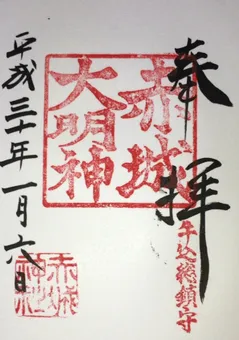 奉拝
牛込総鎮守
赤城
大明神
平成三十年一月六日
赤城
神社